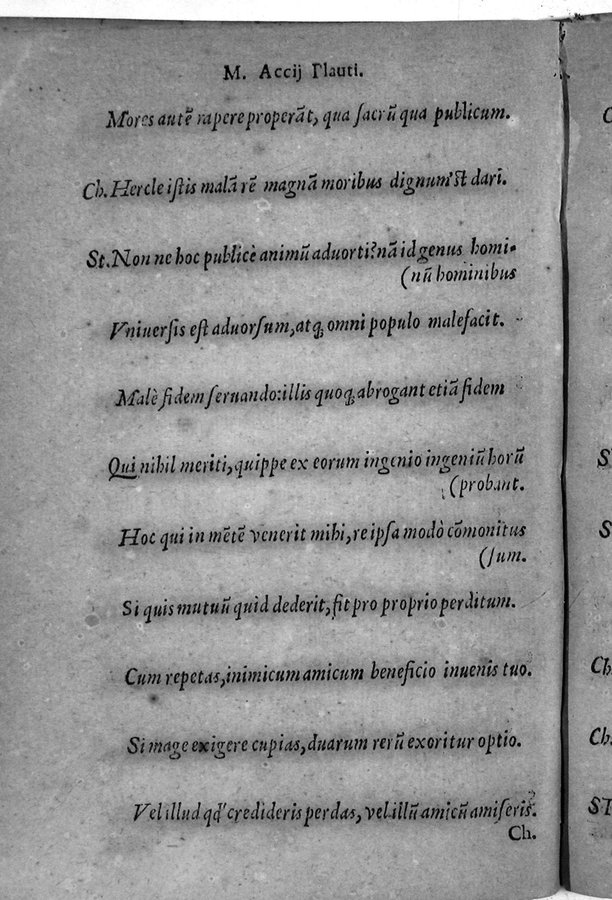 M. Accij Plauti.
Mores autē rapere properāt, qua sacrū qua publicum.
Ch. Hercle istis malā rē magnā moribus dignum'st dari.
St. Non ne hoc publicè animū aduorti? nā id genus homi-
(nū hominibus
Vniuersis est aduorsum, atq; omni populo malefacit.
Malè fidem seruando: illis quoq; abrogant etiā fidem
Qui nihil meriti, quippe ex eorum ingenio ingeniū horū
(probant.
Hoc qui in mētē venerit mihi, re ipsa modò cōmonitus
(sum.
Si quis mutuū quid dederit, fit pro proprio perditum.
Cum repetas, inimicum amicum beneficio inuenis tuo.
Si mage exigere cupias, duarum rerū exoritur optio.
Vel illud qd' credideris perdas, vel illū amicū amiseris.
Ch.
C
S
S
Ch
Ch.
ST